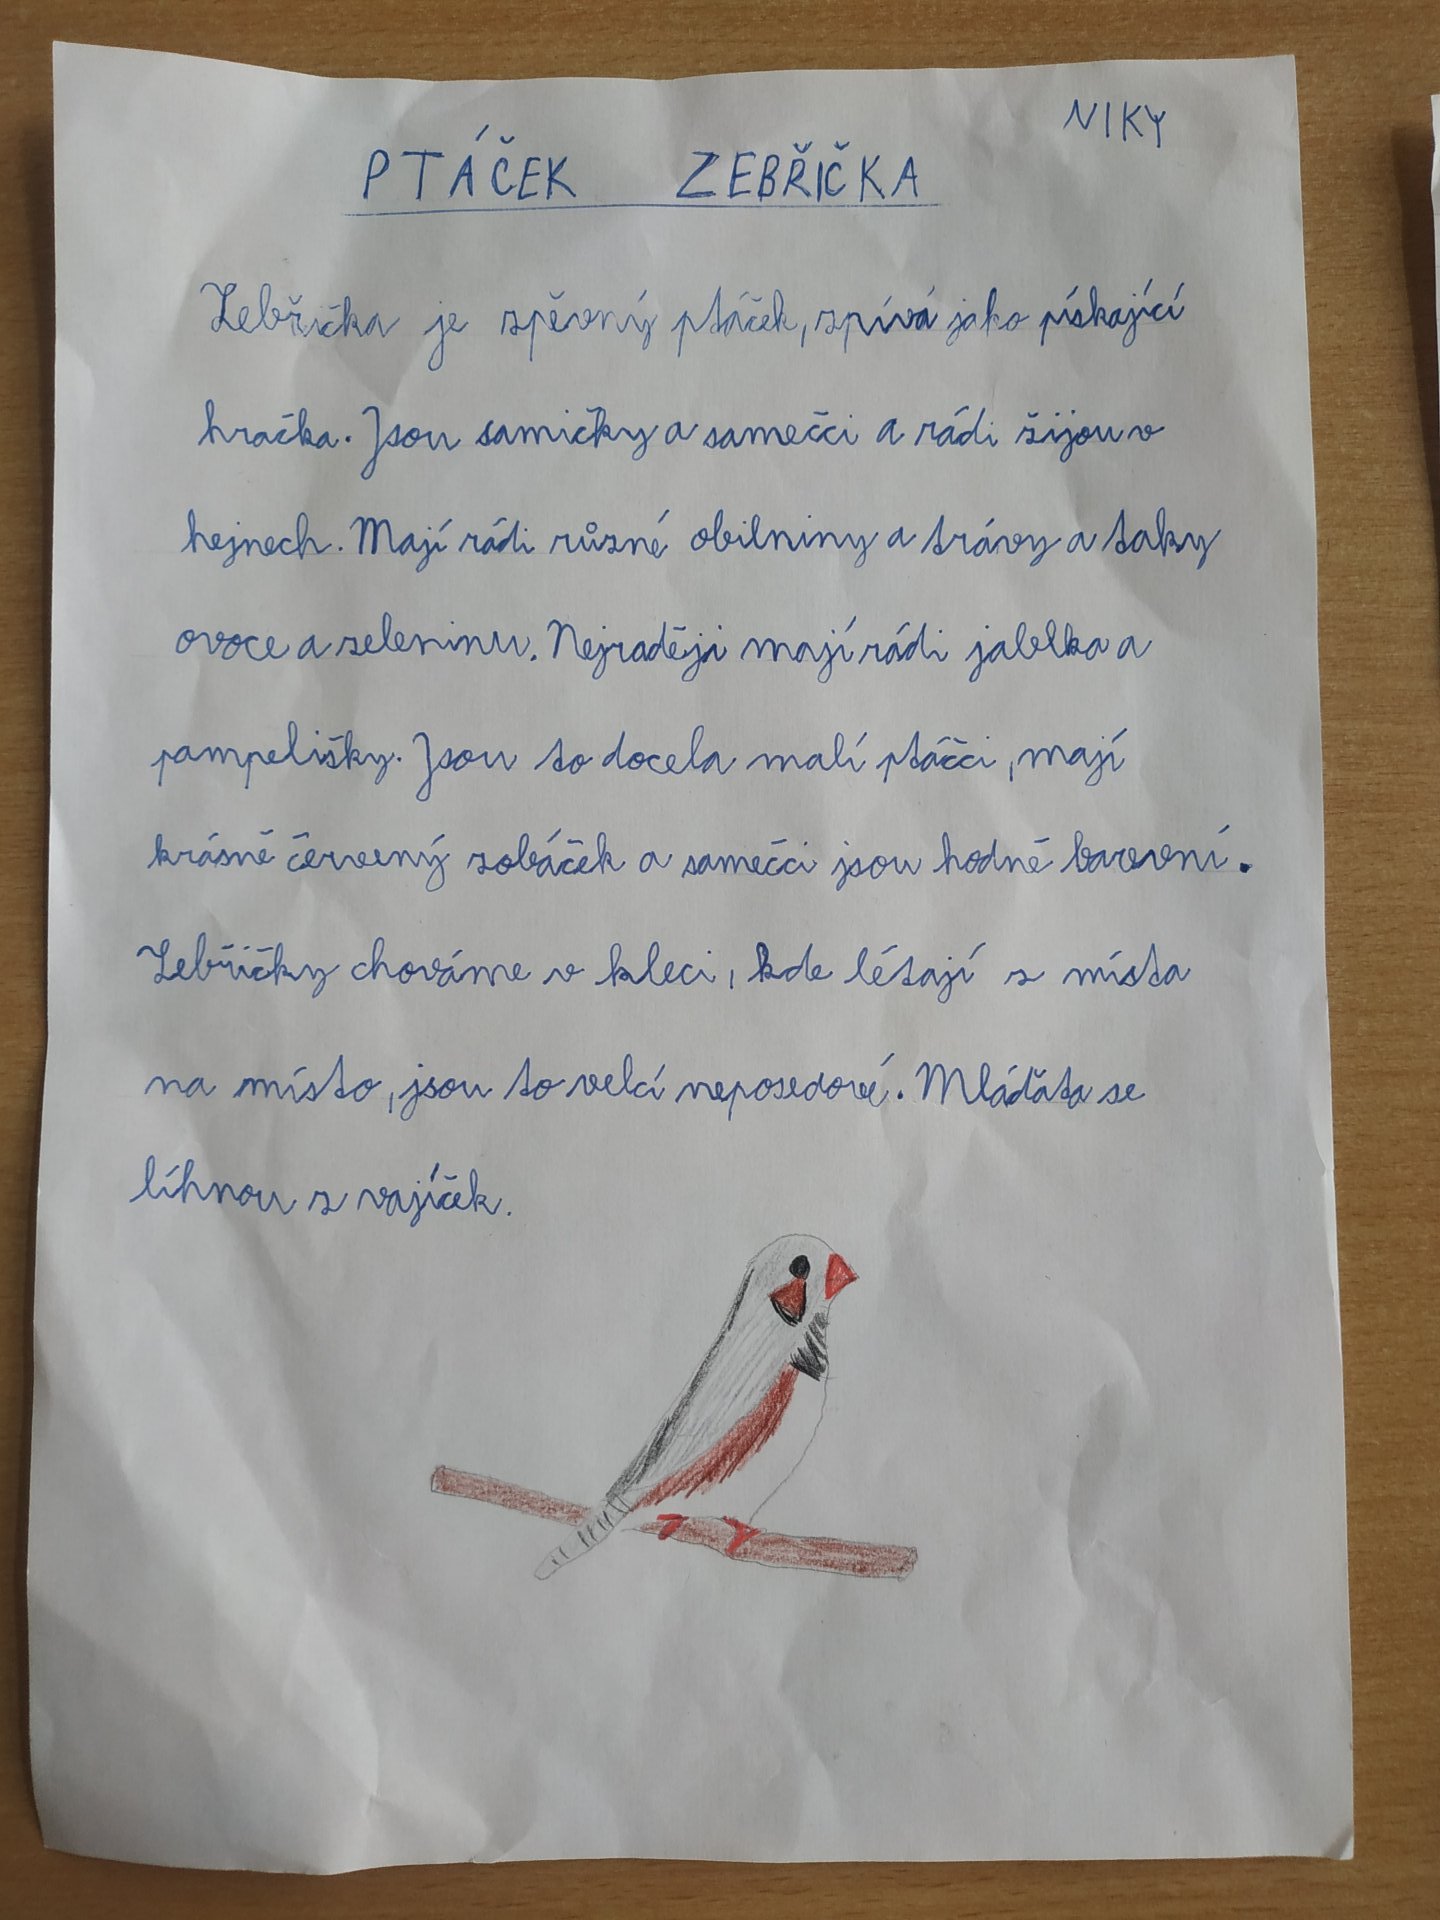 NIKY
PTÁČEK ZEBŘIČKA
Zebřička je zpěvný ptáček, zpívá jako pískající
hračka. Jsou samičky a samečci a rádi žijou v
hejnech. Mají rádi různé obilniny a trávy a taky
ovoce a zeleninu. Nejraději mají rádi jablka a
pampelišky. Jsou to docela malí ptáčci, mají
krásně červený zobáček a samečci jsou hodně barevní.
Zebřičky chováme v kleci, kde létají z místa
na místo, jsou to velcí neposedové. Mláďata se
líhnou z vajíček.